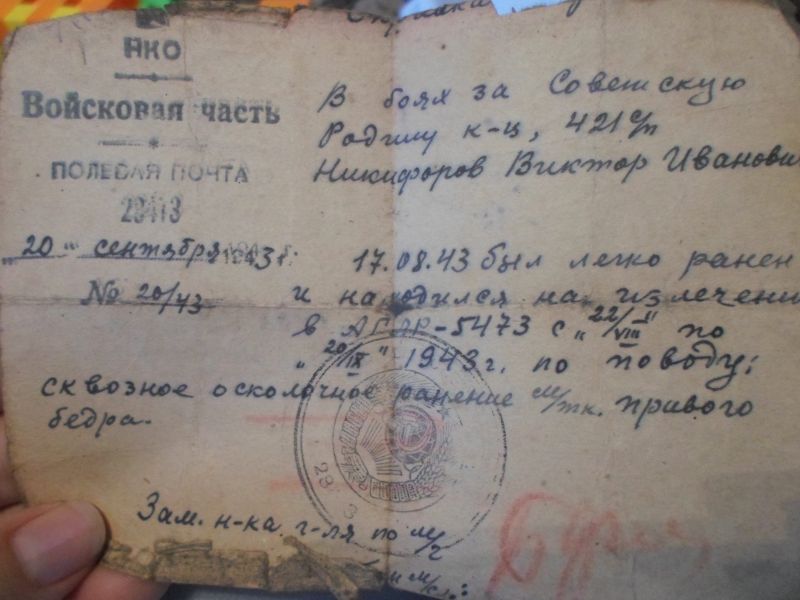 НКО
Войсковая часть
ПОЛЕВАЯ ПОЧТА
29413
„20" сентября 1943 г.
№ 20/43
В боях за Советскую
Родину к-ц, 421 с/п
Никифоров Виктор Иванович
17.08.43 был легко ранен
и находился на излечении
в АГЛР-5473 с „22/VIII" по
„20/IX" 1943 г. по поводу:
сквозное осколочное ранение м/тк. правого
бедра.
Зам. н-ка г-ля по м/ч